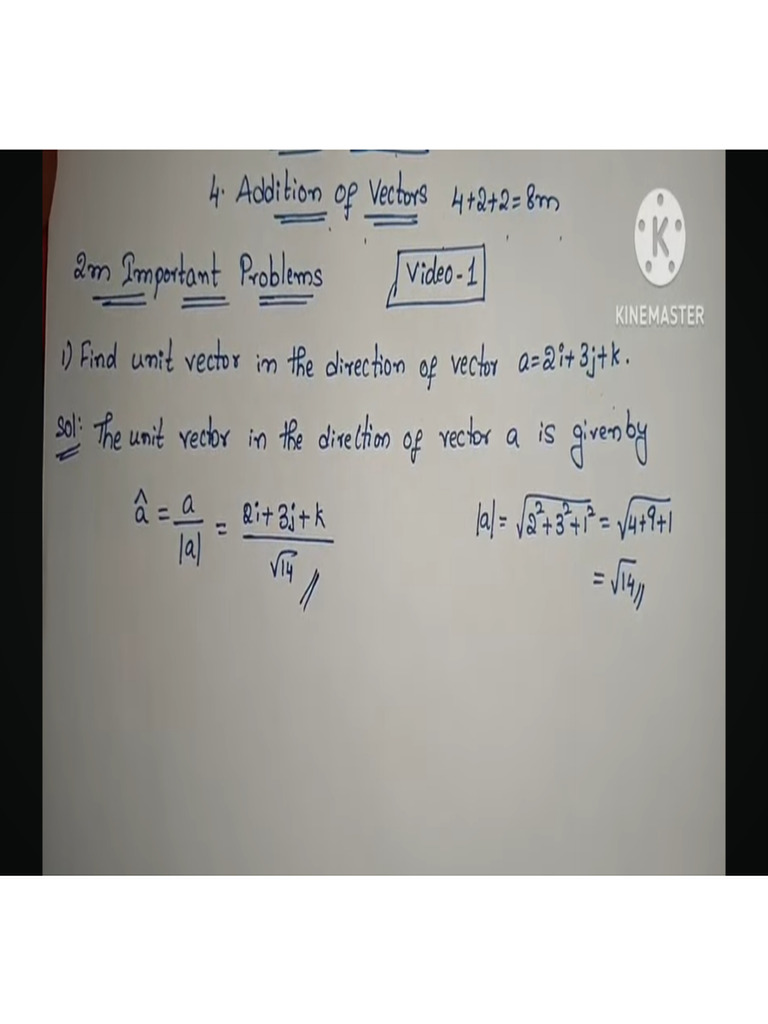 4. Addition of Vectors 4+2+2=8m
2m Important Problems Video-1
K
KINEMASTER
1) Find unit vector in the direction of vector a=2i+3j+k.
Sol: The unit vector in the direction of vector a is given by
â = a/|a| = 2i+3j+k/√14 // |a| = √2²+3²+1² = √4+9+1
= √14 //